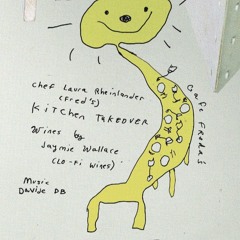 Chef Laura Rheinlander
(Fred's)
KitcHen TAKEOVER
Wines by
Jaymie Wallace
(LO-Fi Wines)
Music
Davide DB
Café Freda's